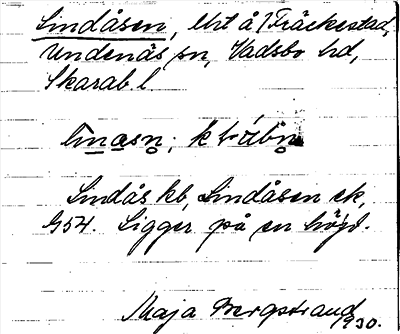 Lindåsen, lht å 1 Fräckestad,
Undenäs sn, Vadsbo hd,
Skarab. l.
Lindås kb, Lindåsen ek,
G54. Ligger på en höjd.
Maja Bergstrand 1930.